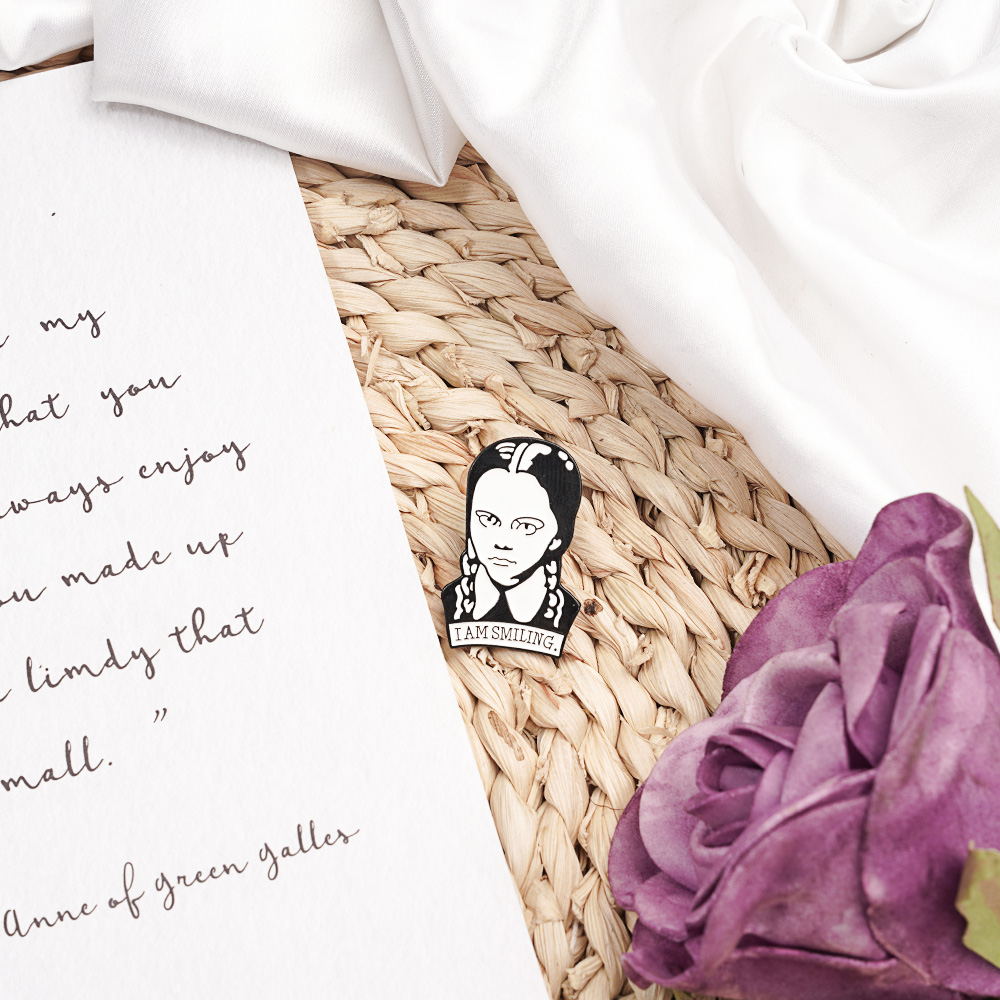 my
that you
always enjoy
you made up
limdy that
small. ”
Anne of Green Galles
I AM SMILING.